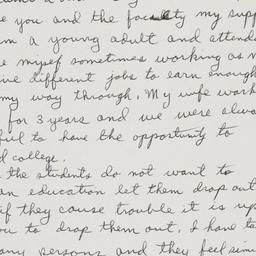 e you and the faculty my supp
m a young adult and attende
e myself sometimes working as m
ive different jobs to earn enough
my way through. My wife work
for 3 years and we were alwa
ful to have the opportunity to
d college.
the students do not want to
an education let them drop out
if they cause trouble it is up
ou to drop them out. I have ta
any persons and they feel simi